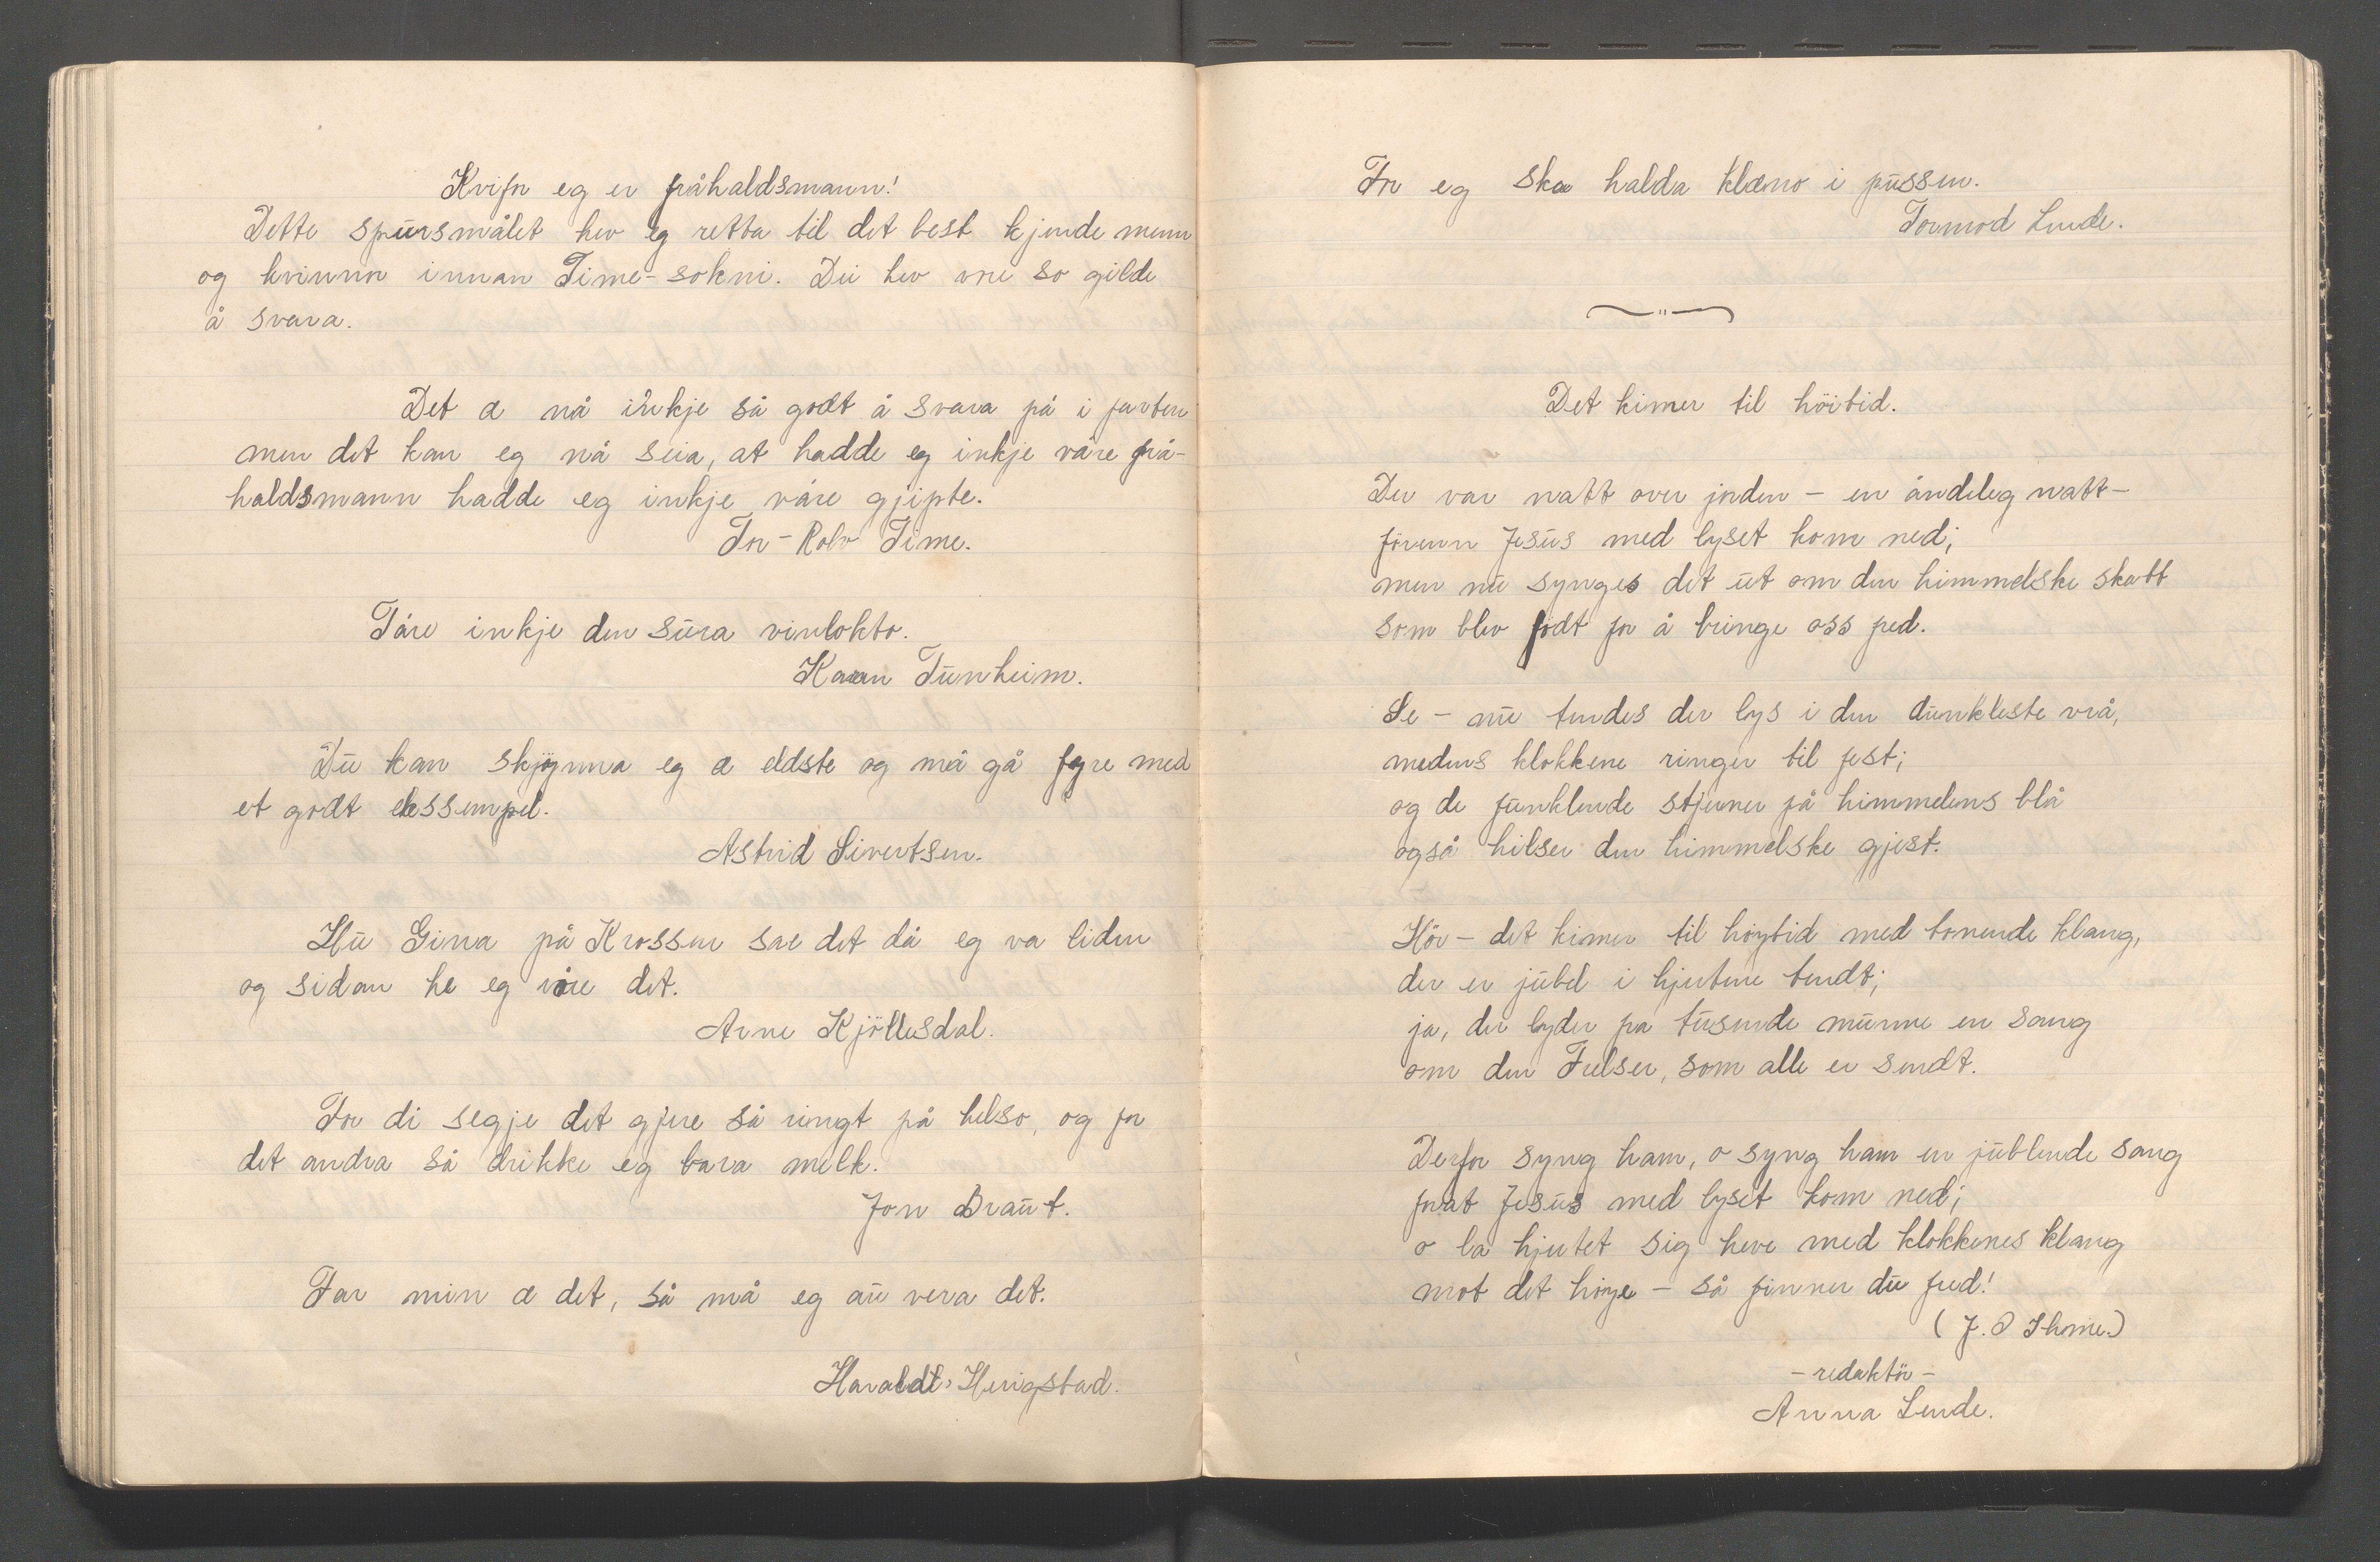 Kvifor eg er fråhaldsmann!
Dette spursmålet hev eg retta til det best kjende menn
og kvinnor innan Time-sokni. Dei hev vore so gilde
å svara.
Det æ nå inkje så godt å svara på i farten
men det kan eg nå seia, at hadde eg inkje våre frå-
haldsmann hadde eg inkje våre gjipte.
Tor-Rolv Time.
Tåre inkje den sura vinlokto.
Karen Tunheim.
Du kan skjønna eg æ eldste og må gå fyre med
et godt ekssempel.
Astrid Sivertsen.
Hu Gina på Krossen sae det då eg va liden
og sidan he eg våre det.
Arne Kjöllesdal.
For di segje det gjere så ringt på helso, og for
det andra så drikke eg bara melk.
Jon Braut.
Far min æ det, så må eg au vera det.
Harald Herigstad.
For eg ska halda klæno i pussen.
Tormod Lende.
Det kimer til höitid.
Der var natt over jorden – en åndeleg natt –
förenn Jesus med lyset kom ned;
men nu synges det ut om den himmelske skatt
som blev födt for å bringe oss fred.
Se – nu tendes der lys i den dunkleste vrå,
medens klokkene ringer til fest;
og de funklende stjerner på himmelens blå
også hilser den himmelske gjest.
Hör – det kimer til høytid med tonende klang,
der er jubel i hjertene tendt;
ja, der lyder fra tusende munne en sang
om den Frelser, som alle er sendt.
Derfor syng ham, o syng ham en jublende sang
forat Jesus med lyset kom ned;
o la hjertet sig heve med klokkenes klang
mot det høye – så finner du fred!
(J. O Thorne.)
– redaktör –
Anna Lende.